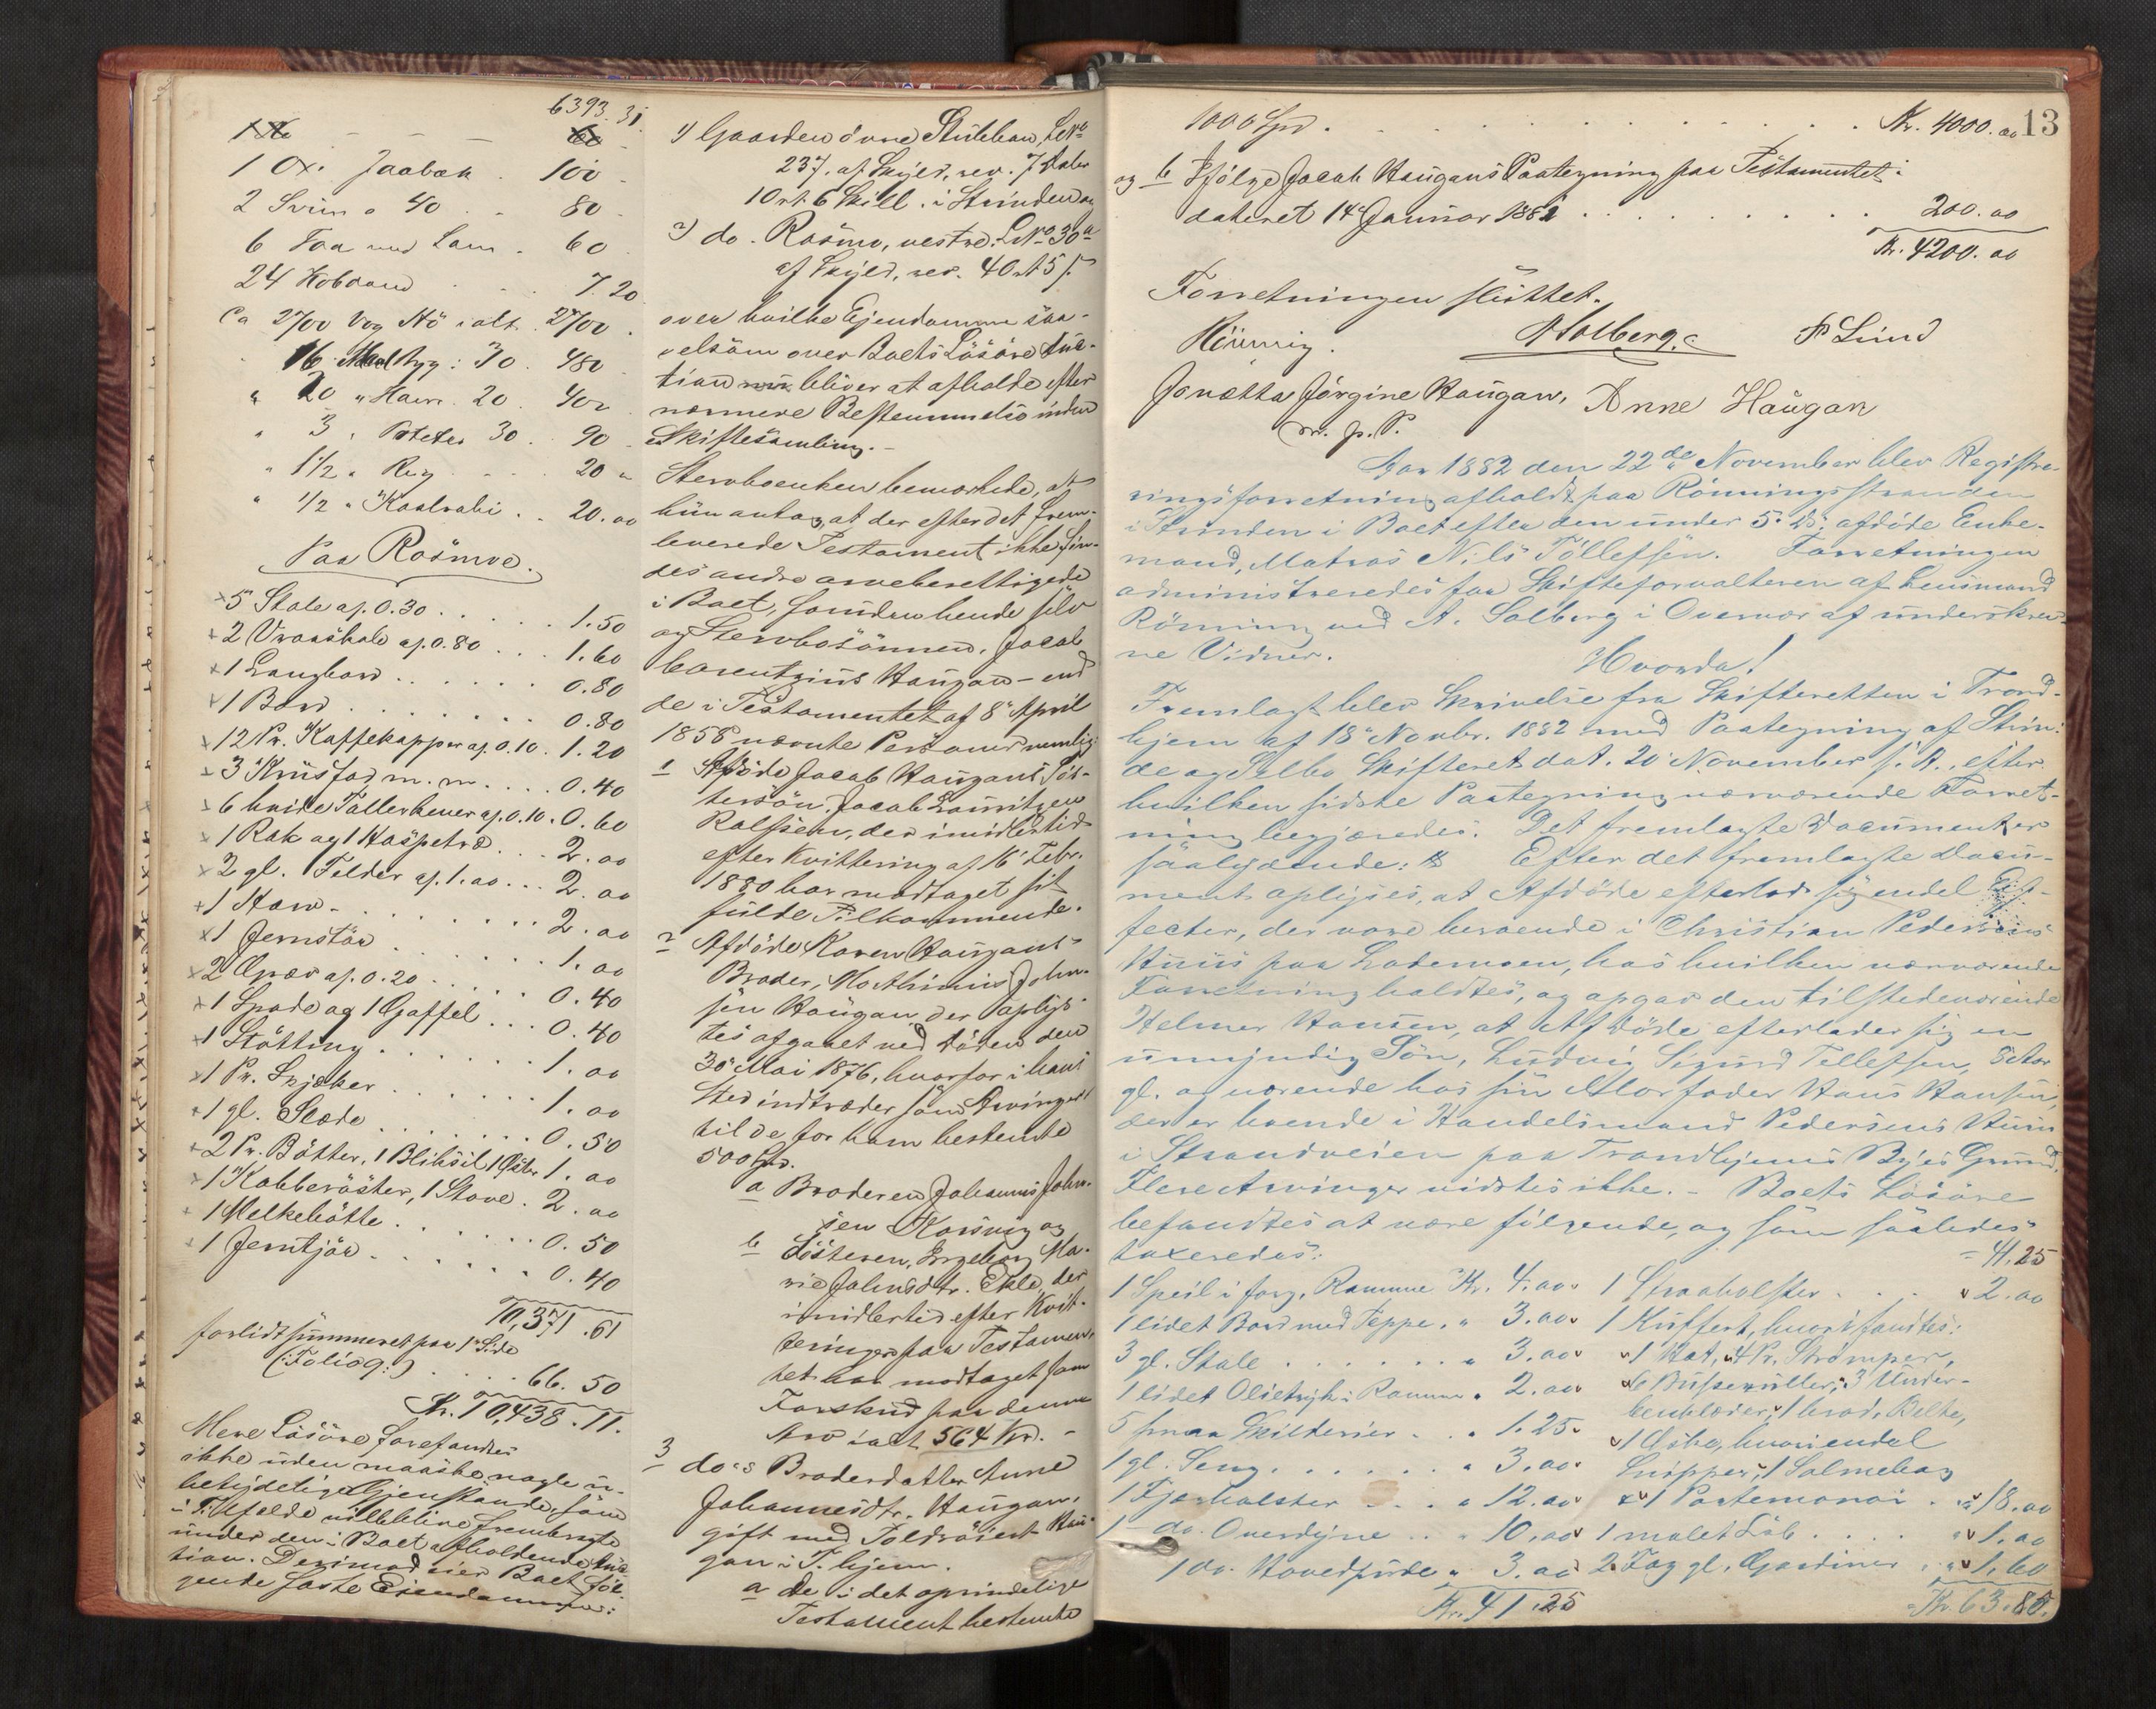 6393.31
1 Ox. Jaabak . 100 -
2 Sviin a 40 . . 80 -
6 Faa med Lam . 60
24 Kobaand . . . 7.20
Ca 2700 Vog Hö ialt . 2700 .
16 Maal Byg : 30 . 480
" 20 " Havre . 20 . 400
" 3 " Poteter 30 . 90 -
" 1 1/2 " Rug . . . 20 "
" 1/2 " Kaalrabi . . 20.00
Paa Rosmo.
5 Stole ap. 0.30 . . . . 1.50
2 Vraaskab ap. 0.80 . . . 1.60
1 Langbord . . . . . 0.80
1 Bord . . . . . . 0.80
12 Pr. Kaffekopper ap. 0.10 . 1.20
3 Krusfad m. m. . . . 0.40
6 hvide Tallerkener ap. 0.10 . 0.60
1 Rok og 1 Haspetræ . . . 2.00
2 gl. Felder ap. 1.00 . . . 2.00
1 Harv . . . . . . 2.00
1 Jernstör . . . . . 1.00
2 Grev ap. 0.20 . . . . 0.40
1 Spade og 1 Gaffel . . . 0.40
1 Stötting . . . . . . 1.00
1 Pr. Skjæker . . . . . 1.00
1 gl. Slæde . . . . . . 0.50
2 Pr. Bötter, 1 Bliksil 1 Öster 1.00
1 Kobberöster, 1 Stove . 2.00
1 Melkebötte . . . . . 0.50
1 Jerntjör . . . . . . 0.40
10,371.61
forlidt summeret paa 1ste Side
(: Folio 9 :) . . . . 66.50
Kr. 10,438.11.
Mere Lösöre forefandtes
ikke uden maaske nogle u-
betydelige Gjenstande, som
i Tilfælde vil blive frembragte
under den i Boet afholdende Auc-
tion. Derimod eier Boet föl-
gende faste Eiendomme:
1) Gaarden övre Stubban, LNo
237, af Skyld, rev. 7 Daler
10 rt. 6 Skill. i Strinden og
2) do. Rosmo, vestre LNo 30a
af Skyld, rev. 40 rt 5 ſ.
over hvilke Ejendomme saa-
velsom over Boets Lösöre Auc-
tion bliver at afholde efter
nærmere Bestemmelse inden
Skiftesamling. -
Stervboenken bemærkede, at
hun antog, at der efter det frem-
leverede Testament ikke fin-
des andre arveberettigede
i Boet, foruden hende selv
og Stervbosönnen, Jacob
Laurentzius Haugan - end
de i Testamentet af 8de April
1858 nævnte Personer nemlig:
1 Afdöde Jacob Haugans Sös-
tersön, Jacob Lauritzen
Rolfsen, der imidlertid
efter Kvittering af 16de Febr.
1880 har modtaget sit
fulde Tilkommende.
2 Afdöde Karen Haugans
Broder, Mathinius John-
sen Haugan der oplys-
tes afgaaet ved döden den
30te Mai 1876, hvorfor i hans
Sted indtræder som Arvinger
til de for ham bestemte
500 Spd.
a Broderen Johannes John-
sen Korsvig og
b Sösteren, Ingeborg Ma-
rie Johnsdtr. Ekle, der
imidlertid efter Kvit-
teringer paa Testamen-
tet har modtaget som
Forskud paa denne
Arv ialt 564 Kr. -
3 do:s Broderdatter Anne
Johannesdtr. Haugan,
gift med Toldröiert Hau-
gan i T.hjem.
a de i det oprindelige
Testament bestemte
1000 Spd. . . . . . . . . . . Kr. 4000.00 13
og b Ifölge Jacob Haugans Paategning paa Testamentet
dateret 14de Januar 1882 . . . . . . . . . 200.00
Kr. 4200.00
Forretningen sluttet.
Rönning. A Solberg. P Lund
Jonetta Jörgine Haugan, Anne Haugan
m. p. P.
Aar 1882 den 22de November blev Registre-
ringsforretning afholdt paa Rönningsstranden
i Strinden i Boet efter den under 5. ds. afdöde Enke-
mand, Matros Nils Tollefsen. Forretningen
administreredes for Skifteforvalteren af Lensmand
Rönning ved A. Solberg i Overvær af underskrev-
ne Vidner.
Hvorda!
Fremlagt blev Skrivelse fra Skifteretten i Trond-
hjem af 18de Novbr. 1882 med Paategning af Strin-
de og Selbo Skifteret dat. 20de November s. A., efter
hvilken sidste Paategning nærværende Forret-
ning begjæredes. Det fremlagte Document er
saalydende: Efter det fremlagte Docu-
ment oplyses, at Afdöde efterlod sig endel Ef-
fecter, der vare beroende i Christian Pedersens
Huus paa Lademoen, hos hvilken nærværende
Forretning holdtes, og opgav den tilstedeværende
Helmer Hansen, at Afdöde efterlader sig en
umyndig Sön, Ludvig Sigurd Tollefsen, 8 Aar
gl. og værende hos sin Morfader Hans Hansen,
der er boende i Handelsmand Pedersens Huus
i Strandveien paa Trondhjems Byes Grund.
Flere Arvinger vidstes ikke. - Boets Lösöre
befandtes at være fölgende, og som saaledes
taxeredes:
1 Speil i forg. Ramme Kr. 4.00
1 lidet Bord med Teppe . " 3.00
3 gl. Stole . . . . . . " 3.00
1 lidet Olietryk i Ramme " 2.00
5 smaa Skilderier . . . 1.25
1 gl. Seng . . . . . . " 3.00
1 Fjærbolster . . . . " 12.00
1 do. Overdyne . . . " 10.00
1 do. Hovedpude " 3.00
Kr. 41.25
= 41.25
1 Straabolster . . . " 2.00
1 Kuffert, hvori fandtes:
1 Hat, 4 Pr. Strömper,
6 Busseruller, 3 Under-
benklæder, 1 brod. Belte,
1 Æske, hvori endel
Snipper, 1 Salmebog
& 1 Portemonai . " 18.00
1 malet Låb . . . . " 1.00
2 Fag gl. Gardiner . . " 1.60
Kr. 63.85.